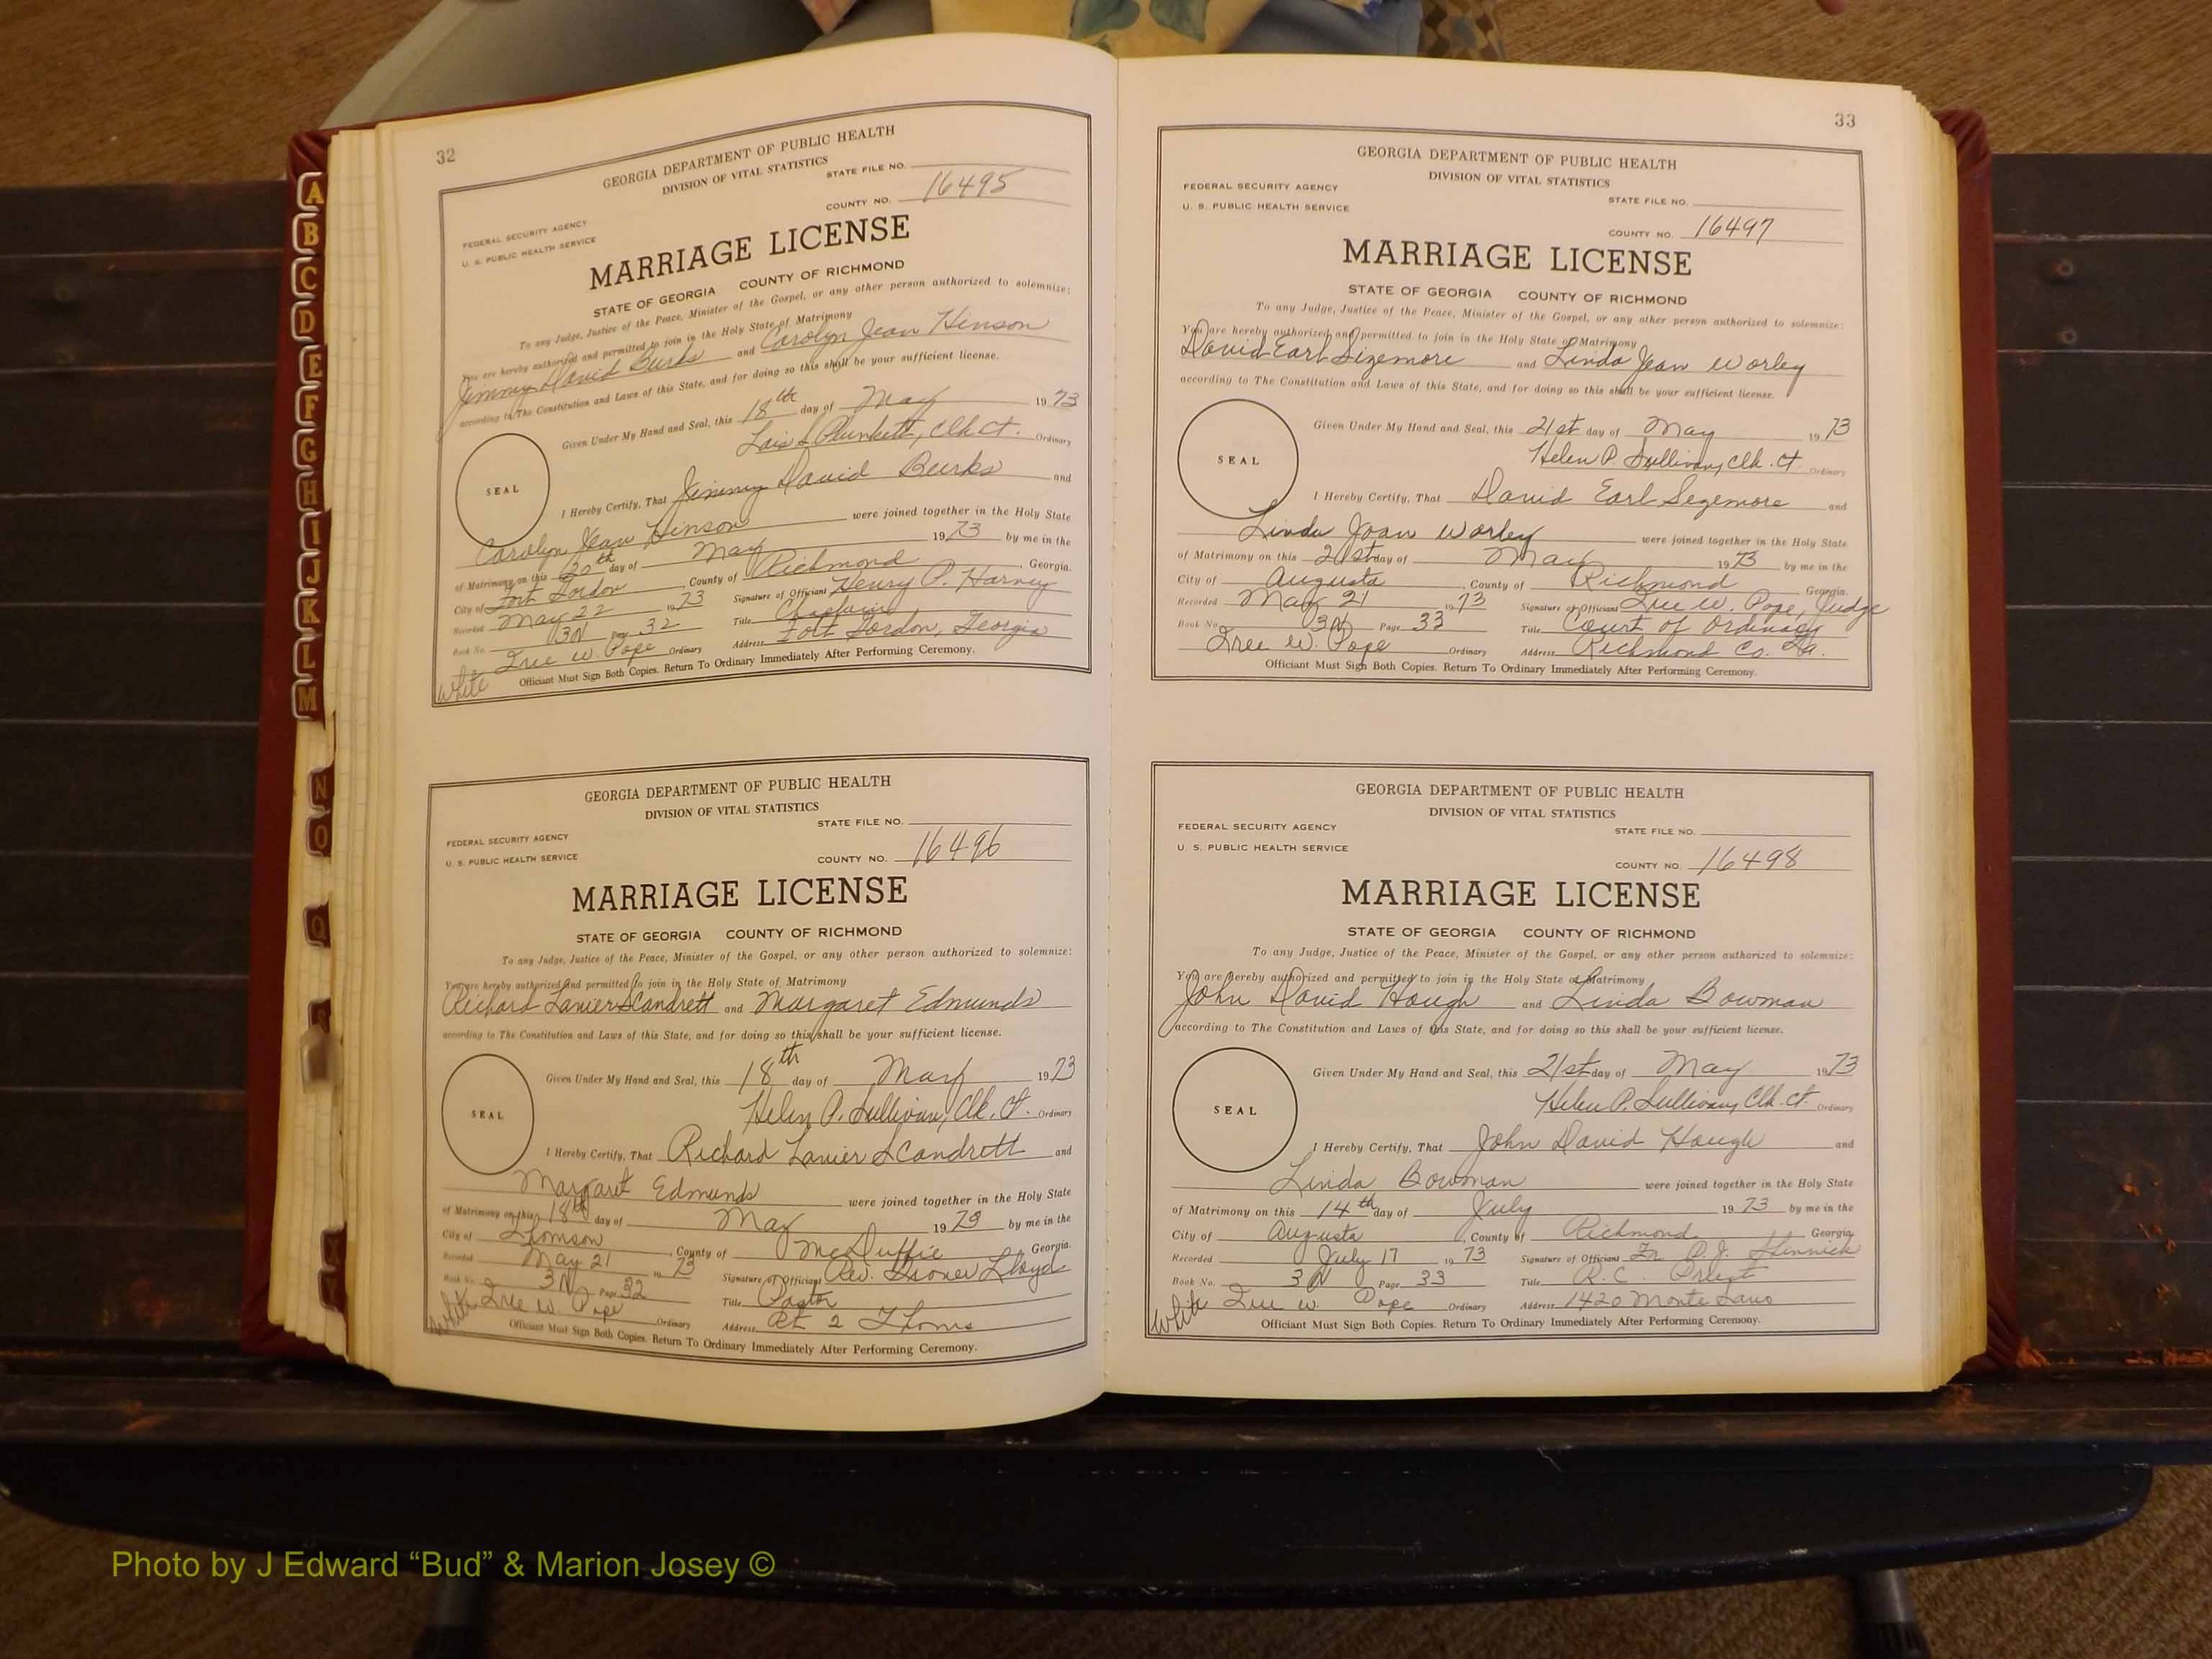 32
GEORGIA DEPARTMENT OF PUBLIC HEALTH
DIVISION OF VITAL STATISTICS
STATE FILE NO.
FEDERAL SECURITY AGENCY
U. S. PUBLIC HEALTH SERVICE
COUNTY NO. 16495
MARRIAGE LICENSE
STATE OF GEORGIA COUNTY OF RICHMOND
To any Judge, Justice of the Peace, Minister of the Gospel, or any other person authorized to solemnize:
You are hereby authorized and permitted to join in the Holy State of Matrimony
Jimmy David Burks and Carolyn Jean Hinson
according to The Constitution and Laws of this State, and for doing so this shall be your sufficient license.
Given Under My Hand and Seal, this 18th day of May 1973
Lois Plunkett, Clk. Ct. Ordinary
SEAL
I Hereby Certify, That Jimmy David Burks and
Carolyn Jean Hinson were joined together in the Holy State
of Matrimony on this 20th day of May 1973 by me in the
City of Fort Gordon, County of Richmond, Georgia.
Recorded May 22 1973 Signature of Officiant Henry P. Harvey
Book No. 3N Page 32 Title
Tree W. Pope Ordinary Address Fort Gordon, Georgia
White
Officiant Must Sign Both Copies. Return To Ordinary Immediately After Performing Ceremony.
GEORGIA DEPARTMENT OF PUBLIC HEALTH
DIVISION OF VITAL STATISTICS
STATE FILE NO.
FEDERAL SECURITY AGENCY
U. S. PUBLIC HEALTH SERVICE
COUNTY NO. 16496
MARRIAGE LICENSE
STATE OF GEORGIA COUNTY OF RICHMOND
To any Judge, Justice of the Peace, Minister of the Gospel, or any other person authorized to solemnize:
You are hereby authorized and permitted to join in the Holy State of Matrimony
Richard Lanier Scandrett and Margaret Edmunds
according to The Constitution and Laws of this State, and for doing so this shall be your sufficient license.
Given Under My Hand and Seal, this 18th day of May 1973
Helen P. Sullivan, Clk. Ct. Ordinary
SEAL
I Hereby Certify, That Richard Lanier Scandrett and
Margaret Edmunds were joined together in the Holy State
of Matrimony on this 18th day of May 1973 by me in the
City of Thomson, County of McDuffie, Georgia.
Recorded May 21 1973 Signature of Officiant Rev. Lloyd
Book No. 3N Page 32 Title Pastor
Tree W. Pope Ordinary Address Rt 2 Thoms
White
Officiant Must Sign Both Copies. Return To Ordinary Immediately After Performing Ceremony.
33
GEORGIA DEPARTMENT OF PUBLIC HEALTH
DIVISION OF VITAL STATISTICS
FEDERAL SECURITY AGENCY
STATE FILE NO.
U. S. PUBLIC HEALTH SERVICE
COUNTY NO. 16497
MARRIAGE LICENSE
STATE OF GEORGIA COUNTY OF RICHMOND
To any Judge, Justice of the Peace, Minister of the Gospel, or any other person authorized to solemnize:
You are hereby authorized and permitted to join in the Holy State of Matrimony
David Earl Sizemore and Linda Jean Worley
according to The Constitution and Laws of this State, and for doing so this shall be your sufficient license.
Given Under My Hand and Seal, this 21st day of May 1973
Helen P. Sullivan, Clk. Ct. Ordinary
SEAL
I Hereby Certify, That David Earl Sezemore and
Linda Joan Worley were joined together in the Holy State
of Matrimony on this 21st day of May 1973 by me in the
City of Augusta, County of Richmond Georgia.
Recorded May 21 1973 Signature of Officiant Tree W. Pope, Judge
Book No. 3N Page 33 Title Court of Ordinary
Tree W. Pope Ordinary Address Richmond Co. Ga.
Officiant Must Sign Both Copies. Return To Ordinary Immediately After Performing Ceremony.
GEORGIA DEPARTMENT OF PUBLIC HEALTH
DIVISION OF VITAL STATISTICS
FEDERAL SECURITY AGENCY
STATE FILE NO.
U. S. PUBLIC HEALTH SERVICE
COUNTY NO. 16498
MARRIAGE LICENSE
STATE OF GEORGIA COUNTY OF RICHMOND
To any Judge, Justice of the Peace, Minister of the Gospel, or any other person authorized to solemnize:
You are hereby authorized and permitted to join in the Holy State of Matrimony
John David Hough and Linda Bowman
according to The Constitution and Laws of this State, and for doing so this shall be your sufficient license.
Given Under My Hand and Seal, this 21st day of May 1973
Helen P. Sullivan, Clk. Ct. Ordinary
SEAL
I Hereby Certify, That John David Hough and
Linda Bowman were joined together in the Holy State
of Matrimony on this 14th day of July 1973 by me in the
City of Augusta, County of Richmond Georgia
Recorded July 17 1973 Signature of Officiant P.J.
Book No. 3N Page 33 Title R.C. Priest
Tree W. Pope Ordinary Address 1420 Monte Sano
White
Officiant Must Sign Both Copies. Return To Ordinary Immediately After Performing Ceremony.
A
B
C
D
E
F
G
H
I
J
K
L
M
N
O
Q
Photo by J Edward “Bud” & Marion Josey ©